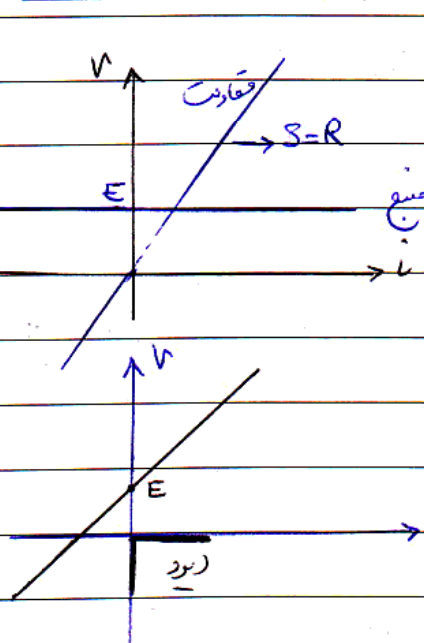 V
مقاومت
S=R
E
منبع
i
V
E
دیود